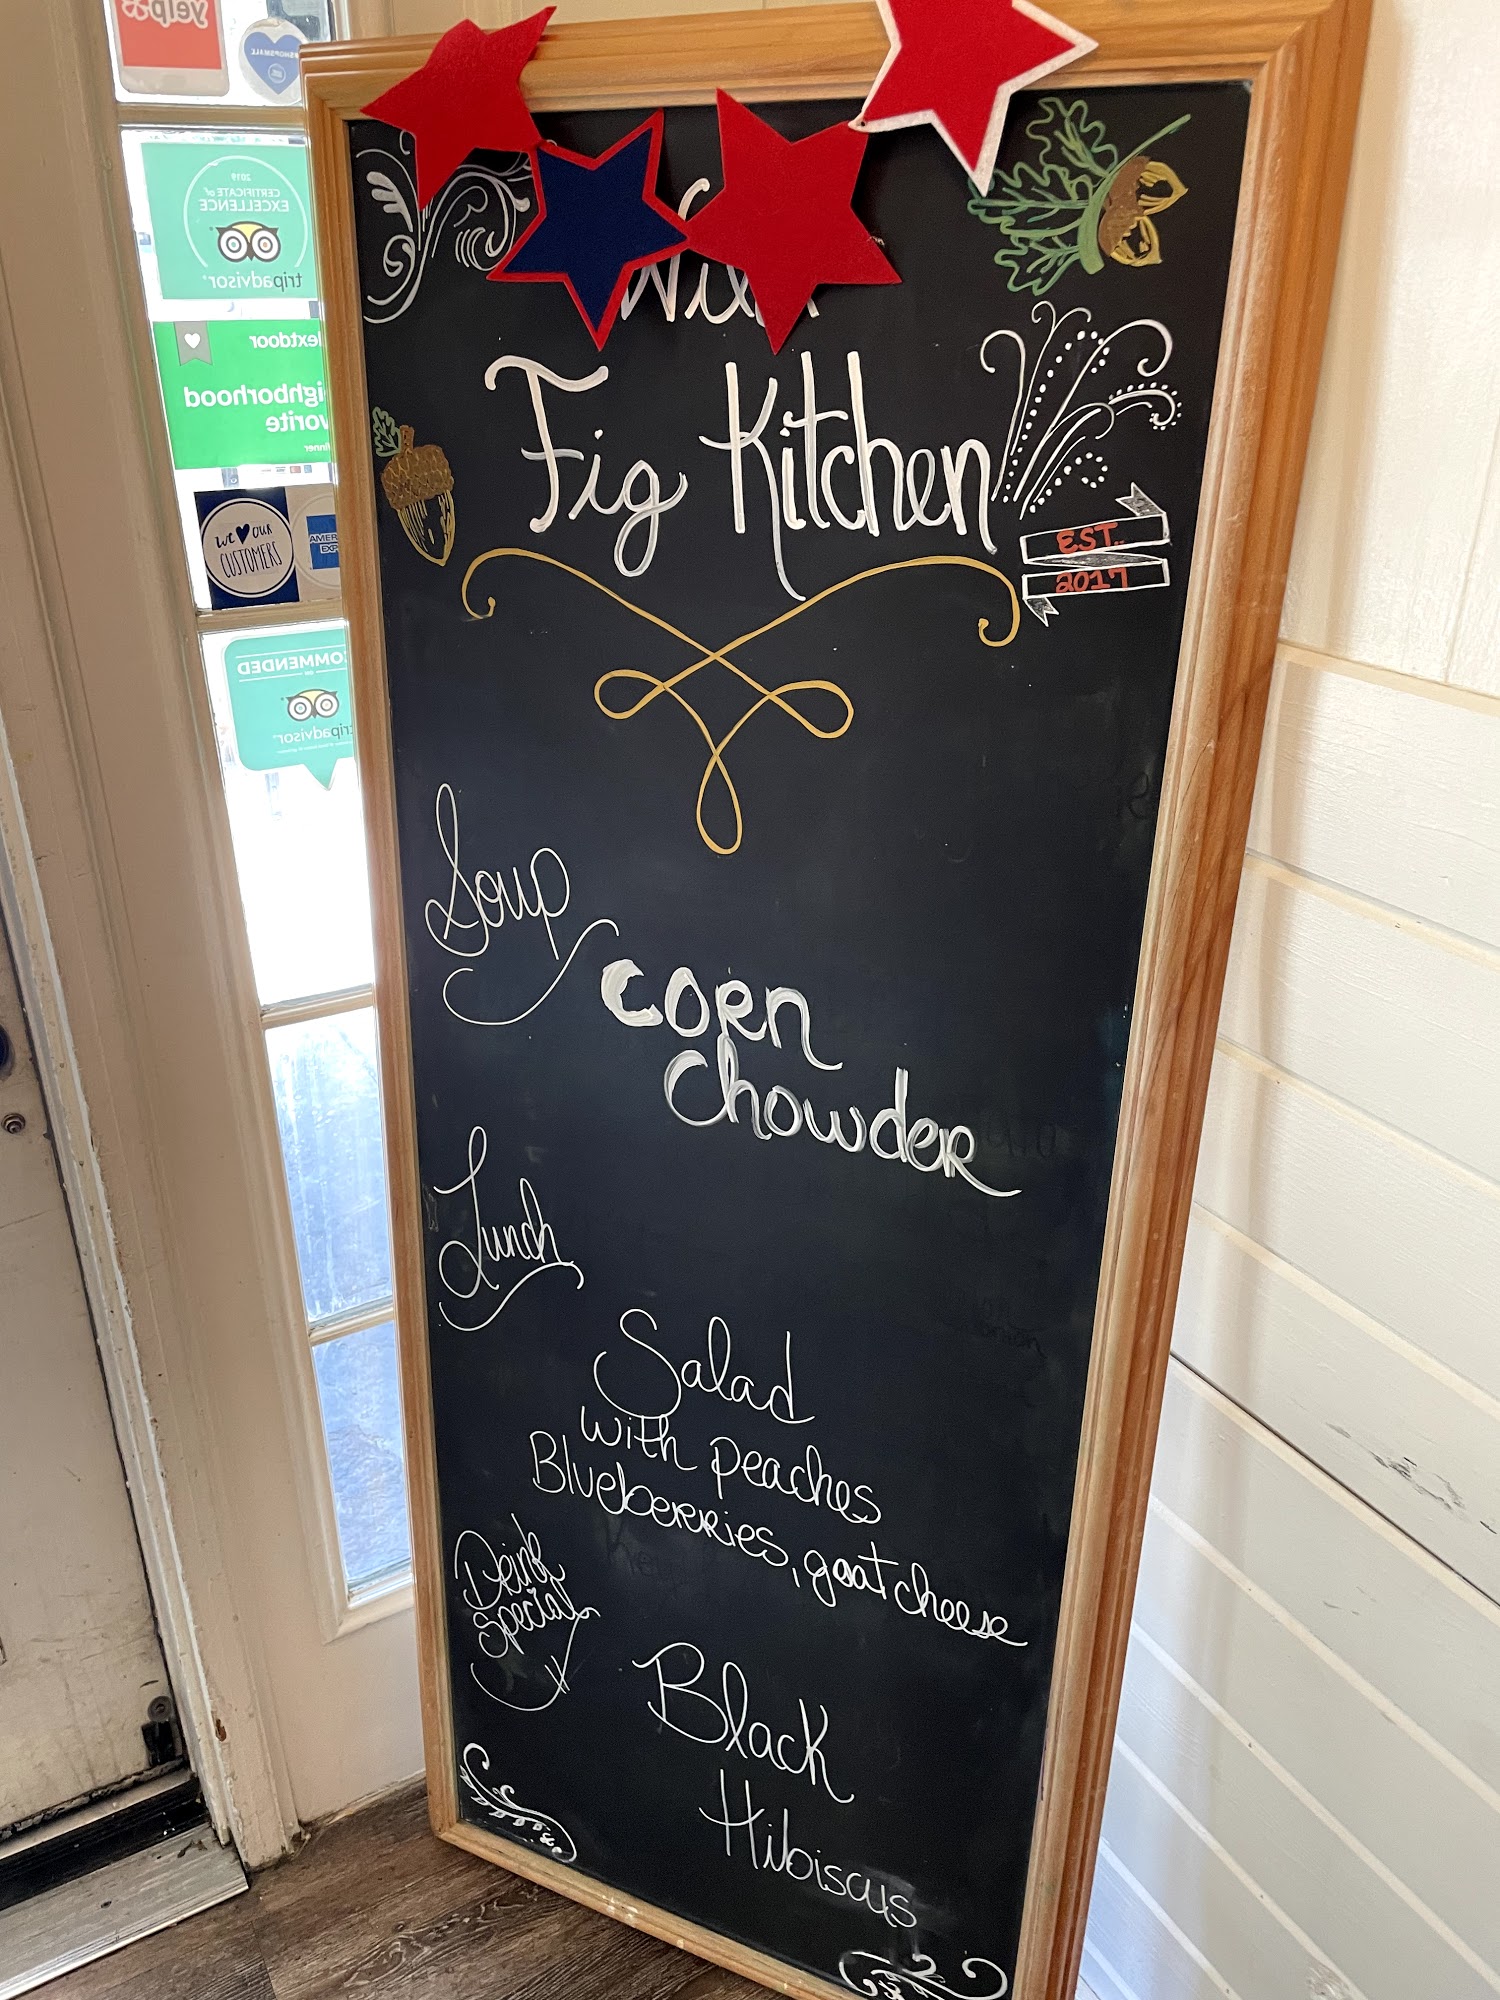 yelp
SHOPSMALL
2019
CERTIFICATE of
EXCELLENCE
tripadvisor®
Nextdoor
winner
We ♥ our
CUSTOMERS
tripadvisor®
Fig Kitchen
EST.
2017
Soup
Corn
Chowder
Lunch
Salad
with peaches
Blueberries, goat cheese
Drink
Special
Black
Hibiscus